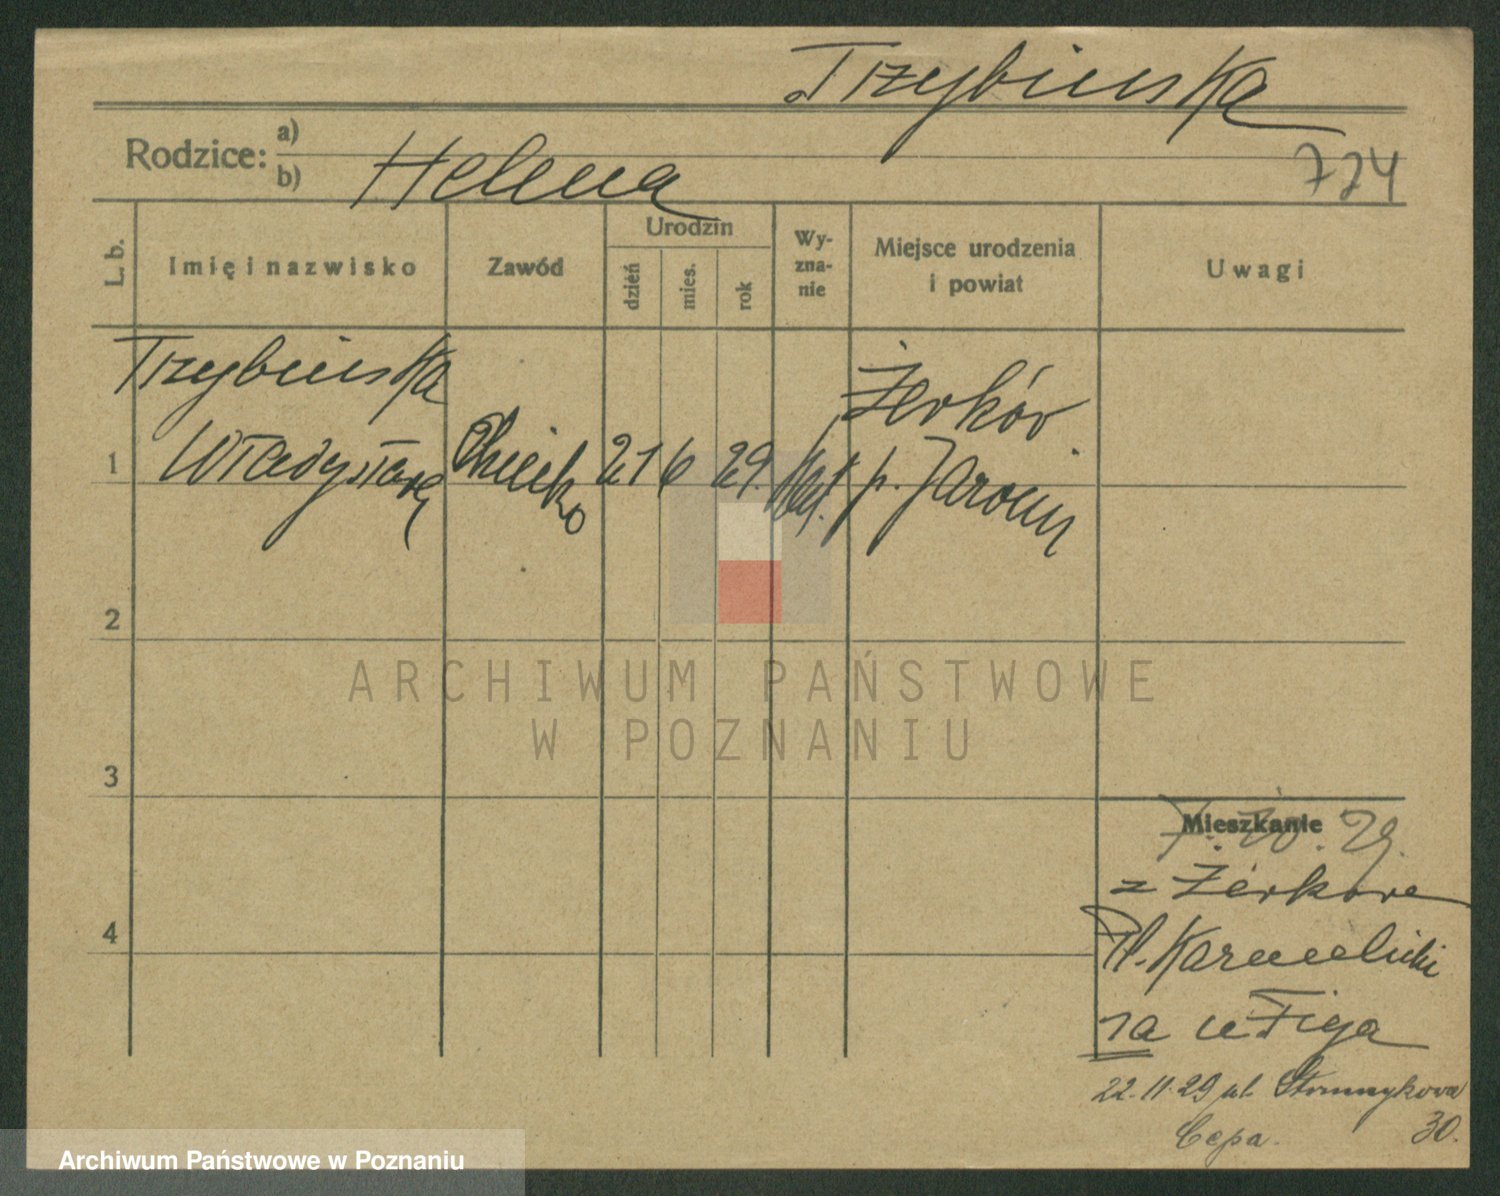 Trzybińska
Rodzice: a)
b) Helena
724
L. b.
Imię i nazwisko
Zawód
Urodzin
dzień
mies.
rok
Wy-
zna-
nie
Miejsce urodzenia
i powiat
Uwagi
Trzybińska
Władysława
1
Dziecko
21
6
29.
kat.
Żerków
p. Jarocin
2
ARCHIWUM PAŃSTWOWE
W POZNANIU
3
Mieszkanie
7. 10. 29.
z Żerkowa
Pl. Karmelicki
1a u Figa
4
22. 11. 29 ul.
Cepa. 30.
Archiwum Państwowe w Poznaniu